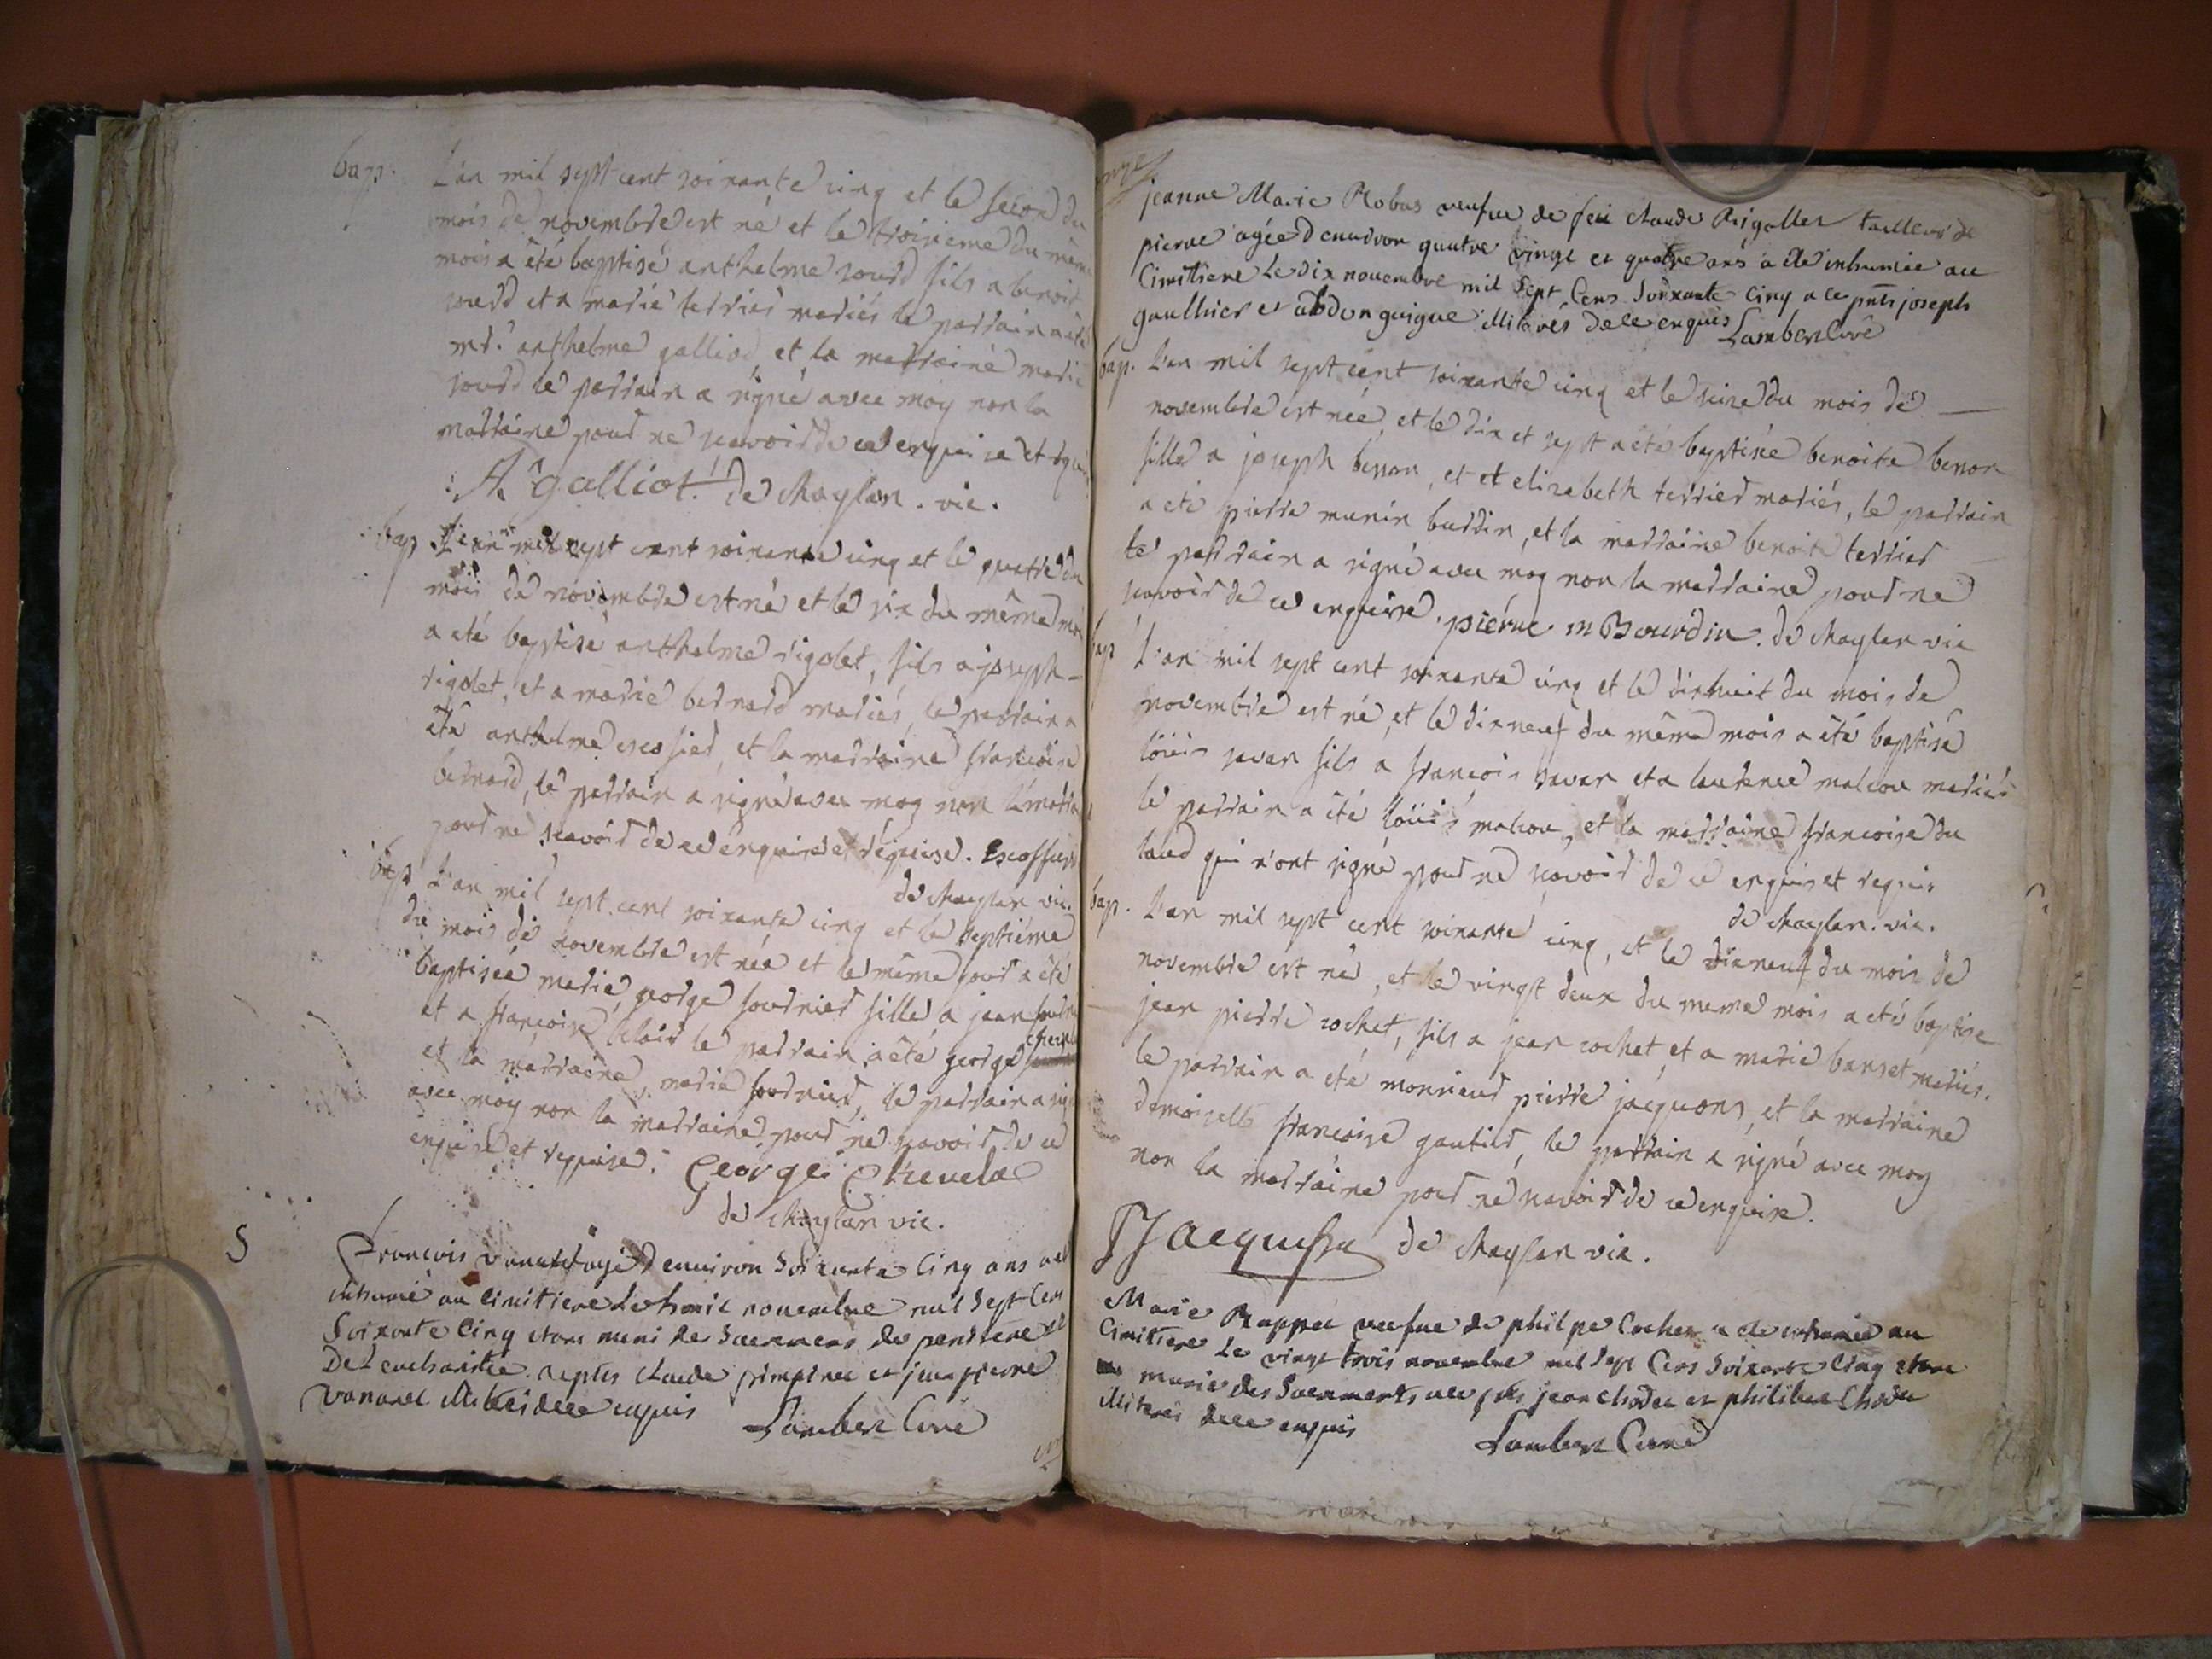 bap. L'an mil sept cent soixante cinq et le second du
mois de novembre est né et le troisieme du même
mois a été baptisé anthelme sourd fils a benoit
sourd et a marie terrier mariés le parrain a été
mr. anthelme galliod et la marraine marie
sourd le parrain a signé avec moy non la
marraine pour ne scavoir de ce enquise et
A galliot. de chaylan. vic.
bap L'an mil sept cent soixante cinq et le quatre du
mois de novembre est né et le six du même mois
a eté baptisé anthelme rigolet, fils a joseph
rigolet, et a marie bernard mariés, le parrain a
été anthelme escofier, et la marraine francoise
bernard, le parrain a signé avec moy non la
pour ne scavoir de ce enquise et requise. Escoffier
de chaylan vic.
bap L'an mil sept cent soixante cinq et le septiéme
du mois de novembre est née et le même jour a été
baptisée marie, george fournier fille a jean
et a françoise clair le parrain a été george
et la marraine marie fournier, le parrain a
avec moy non la marraine pour ne scavoir de ce
enquise et requise. George Chevela
de chaylan vic.
S François agé d'environ Soixante Cinq ans
inhumé au Cimitiere Le huit novembre mil Sept Cens
Soixante Cinq etant muni des Sacremens de penitence et
De L eucharistie. Claude et jean pierre
vanarel illiterés de ce enquis Lambert Curé
jeanne Marie Robas veufve de feu claude Rigollet tailleur de
pierre agée d'environ quatre vingt et quatre ans a été inhumée au
Cimitiere Le dix novembre mil Sept Cens Soixante Cinq a ce pnts joseph
gaulthier et abdon guigue illiterés de ce enquis Lambert Curé
bap. L'an mil sept cent soixante cinq et le seize du mois de
novembre est née, et le dix et sept a été baptisée benoite benon
fille a joseph benon, et et elizabeth terrier mariés, le parrain
a eté pierre munin burdin, et la marraine benoite terrier
le parrain a signé avec moy non la marraine pour ne
scavoir de ce enquise. piérre m Bourdin. de chaylan vic
bap L'an mil sept cent soixante cinq et le dixhuit du mois de
novembre est né, et le dixneuf du même mois a été baptisé
loüis savar fils a françois savar et a laurence malcou mariés
le parrain a été loüis malcou, et la marraine francoise du
laud qui n'ont signé pour ne scavoir de ce enquis et requis
de chaylan. vic.
bap. L'an mil sept cent soixante cinq, et le dixneuf du mois de
novembre est né, et le vingt deux du meme mois a eté baptisé
jean pierre cochet, fils a jean cochet et a marie banset mariés.
le parrain a eté monsieur pierre jacquons, et la marraine
demoiselle francoise gautier, le parrain a signé avec moy
non la marraine pour ne scavoir de ce enquise.
de chaylan vic.
Marie Rappet veufue de philpe Cochet a été inhumée au
Cimitiere Le vingt trois novembre mil Sept Cens Soixante Cinq etant
munie des Sacrements a ce pnts jean et philibert
illiterés de ce enquis Lambert Curé